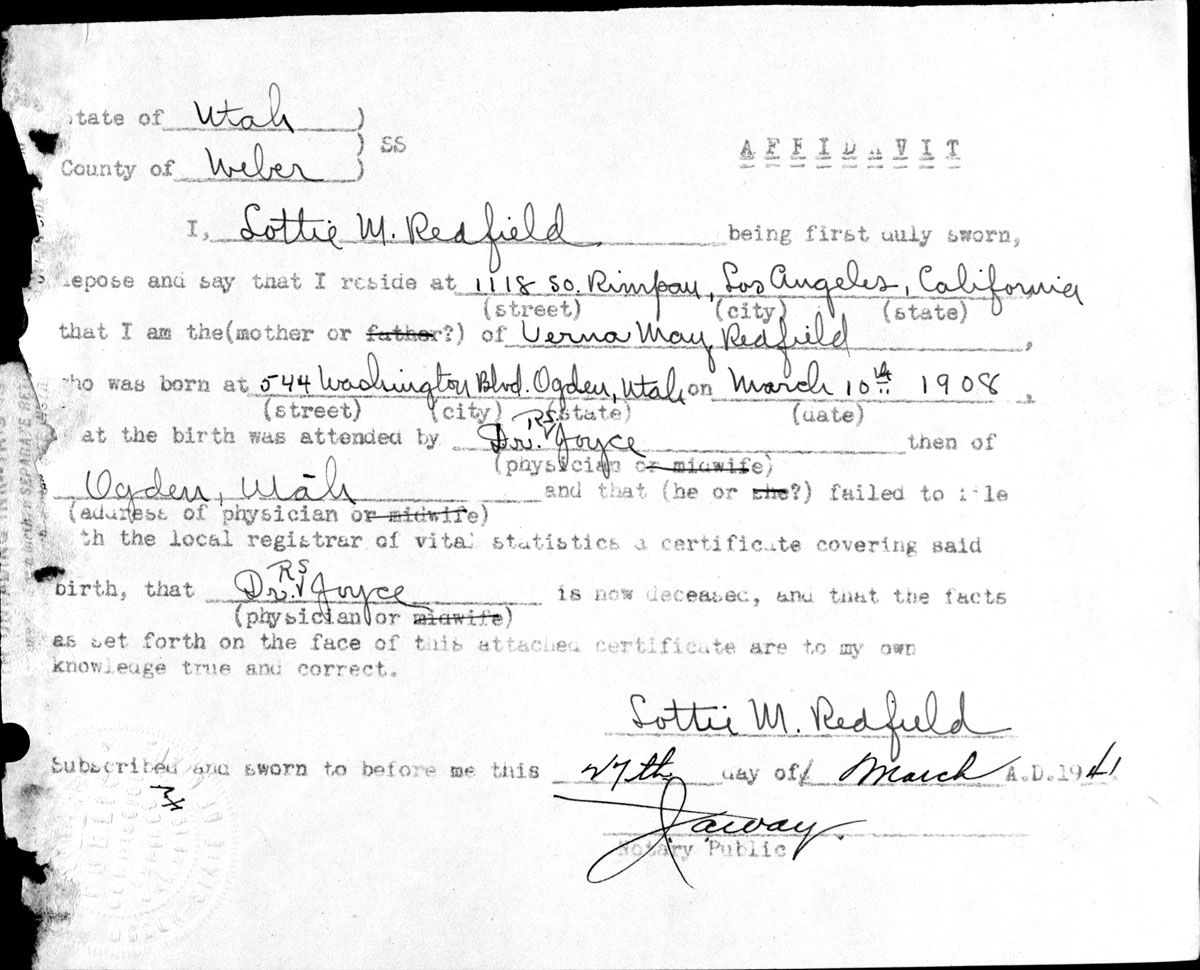 tate of Utah )
) SS
County of Weber )
AFFIDAVIT
I, Lottie M. Redfield being first duly sworn,
epose and say that I reside at 1118 So. Rimpau, Los Angeles, California
(street) (city) (state)
that I am the(mother or father?) of Verna May Redfield,
ho was born at 544 Washington Blvd. Ogden, Utah on March 10th 1908,
(street) (city) (state) (date)
at the birth was attended by Dr. RS. Joyce then of
(physician or midwife)
Ogden, Utah and that (he or she?) failed to file
(address of physician or midwife)
th the local registrar of vital statistics a certificate covering said
birth, that Dr. RS Joyce is now deceased, and that the facts
(physician or midwife)
as set forth on the face of this attached certificate are to my own
knowledge true and correct.
Lottie M. Redfield
Subscribed and sworn to before me this 27th day of March A.D.1941
Notary Public